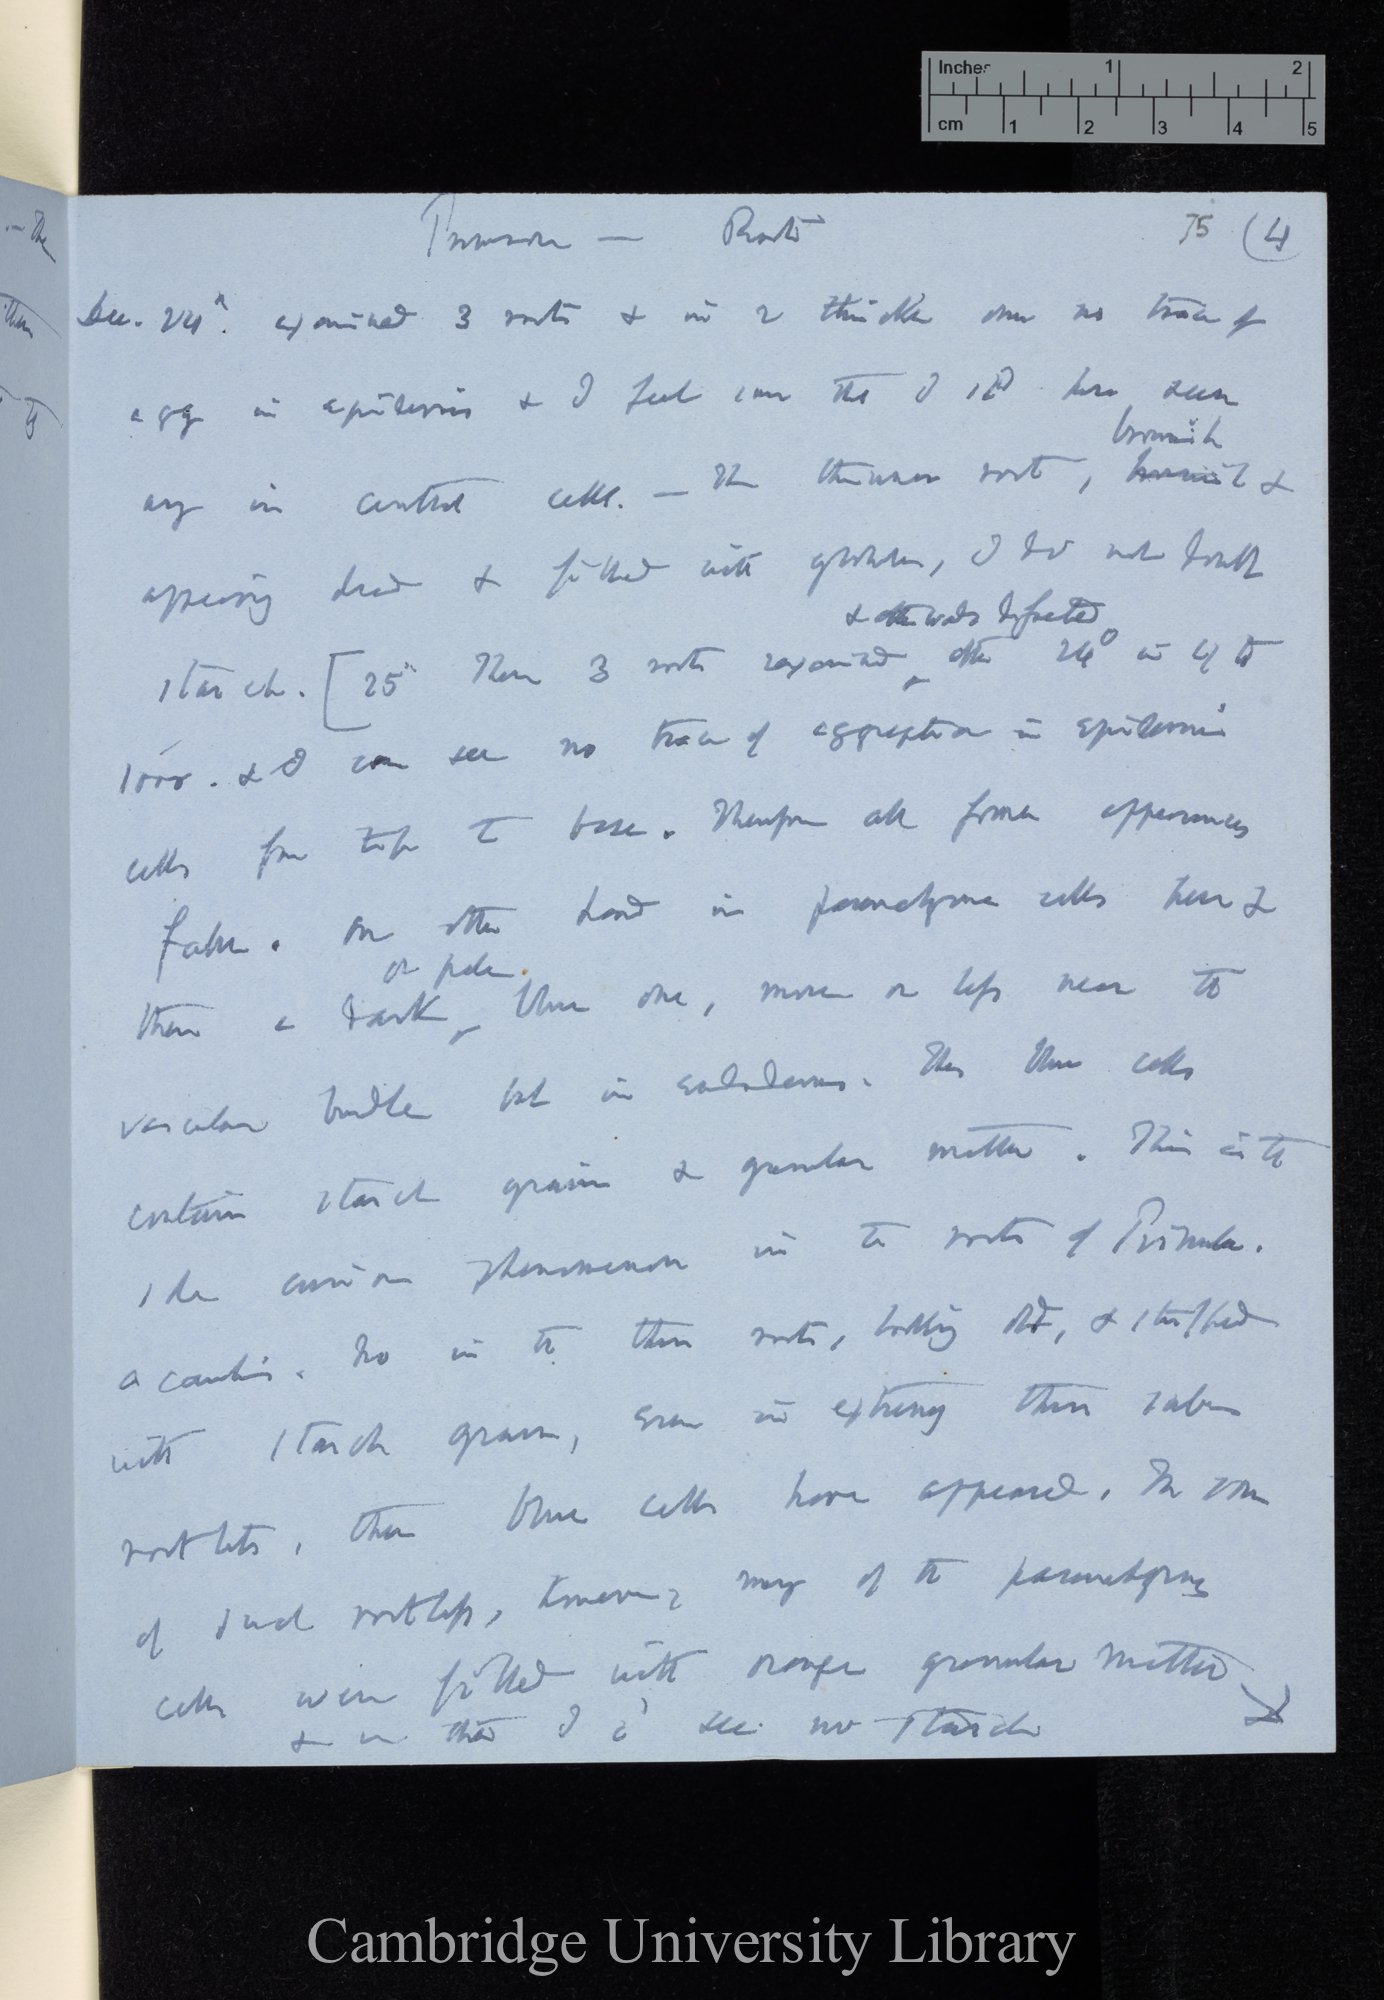 Inches 1 2
cm 1 2 3 4 5
Primrose — Roots
75 (4)
Dec. 24th. examined 3 roots & in 2 thicker ones no trace of
agg in epidermis & I feel sure tht I shd have seen
brownish
any in central cells. — The thinner root, &
appearing dead & filled with globules, I do not doubt
& afterwards dissected
starch. [25th These 3 roots examined after 24° in 4 to
1000. & I can see no trace of aggregation in epidermis
cells from tip to base. Therefore all former appearances
false. On other hand in parenchyma cells here &
or pale
there a dark blue one, more or less near to
vascular bundle but in endodermis. These blue cells
contain starch grains & granular matter. This is the
same curious phenomenon in the roots of Primula
acaulis. No in the thin roots, looking old, & stuffed
with starch grains, even in extremely thin
rootlets, these blue cells have appeared. In some
of such rootlets, however, many of the parenchyma
cells were filled with orange granular matter
& in these I cd see no starch
Cambridge University Library